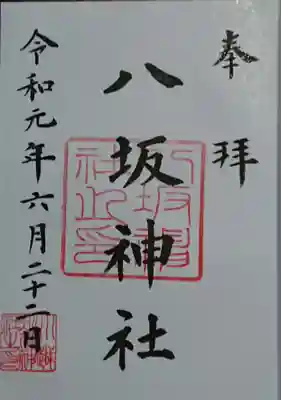 奉拝
八坂神社
令和元年六月二十二日